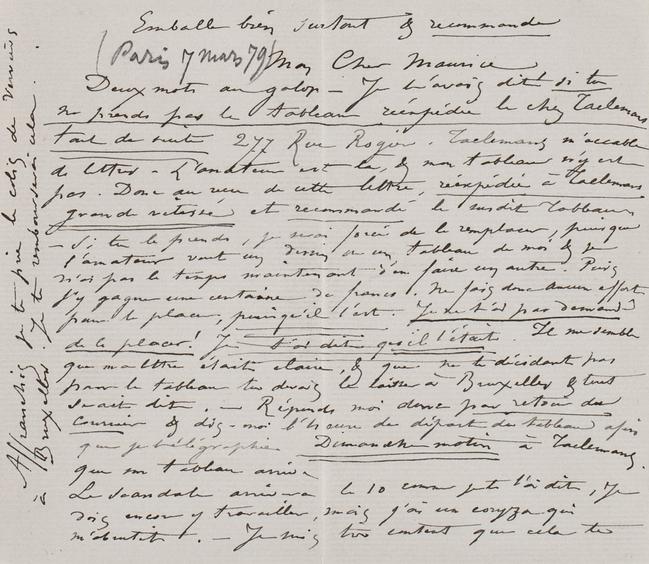 Emballe bien surtout & recommande
(Paris 7 mars 79) Mon Cher Maurice
Deux mots au galop – Je t'avais dit si tu
ne prends pas le tableau réexpédie le chez Taelemans
tout de suite 277 Rue Rogier. Taelemans m'accable
de lettres – L'amateur est là, & mon tableau n'y est
pas. Donc au reçu de cette lettre, réexpédie à Taelemans
grande vitesse et recommandé le susdit tableau
– Si tu le prends, je serai forcé de le remplacer, puisque
l'amateur veut un dessin ou un tableau de moi & je
n'ai pas le temps maintenant d'en faire un autre. Puis
j'y gagne une centaine de francs. Ne fais donc aucun effort
pour le placer, puisqu'il l'est. Je ne t'ai pas demandé
de le placer! Je t'ai dit qu'il l'était. Il me semble
que ma lettre était claire, & que ne te décidant pas
pour le tableau tu devais le laisser à Bruxelles & tout
était dit. – Réponds moi donc par retour du
Courrier & dis-moi l'heure de départ du tableau afin
que je télégraphie Dimanche matin à Taelemans
que son tableau arrive
Le scandale arrivera le 10 comme je te l'ai dit, Je
dois encore y travailler, mais j'ai un coryza qui
m'abrutit. – Je suis très content que cela te
Affranchis je te prie le colis de Verviers
à Bruxelles. Je te rembourserai cela.